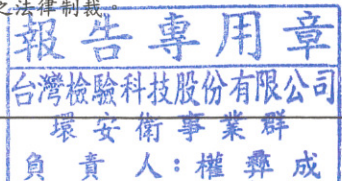 之法律制裁。
報告專用章
台灣檢驗科技股份有限公司
環安衛事業群
負責人：權彝成